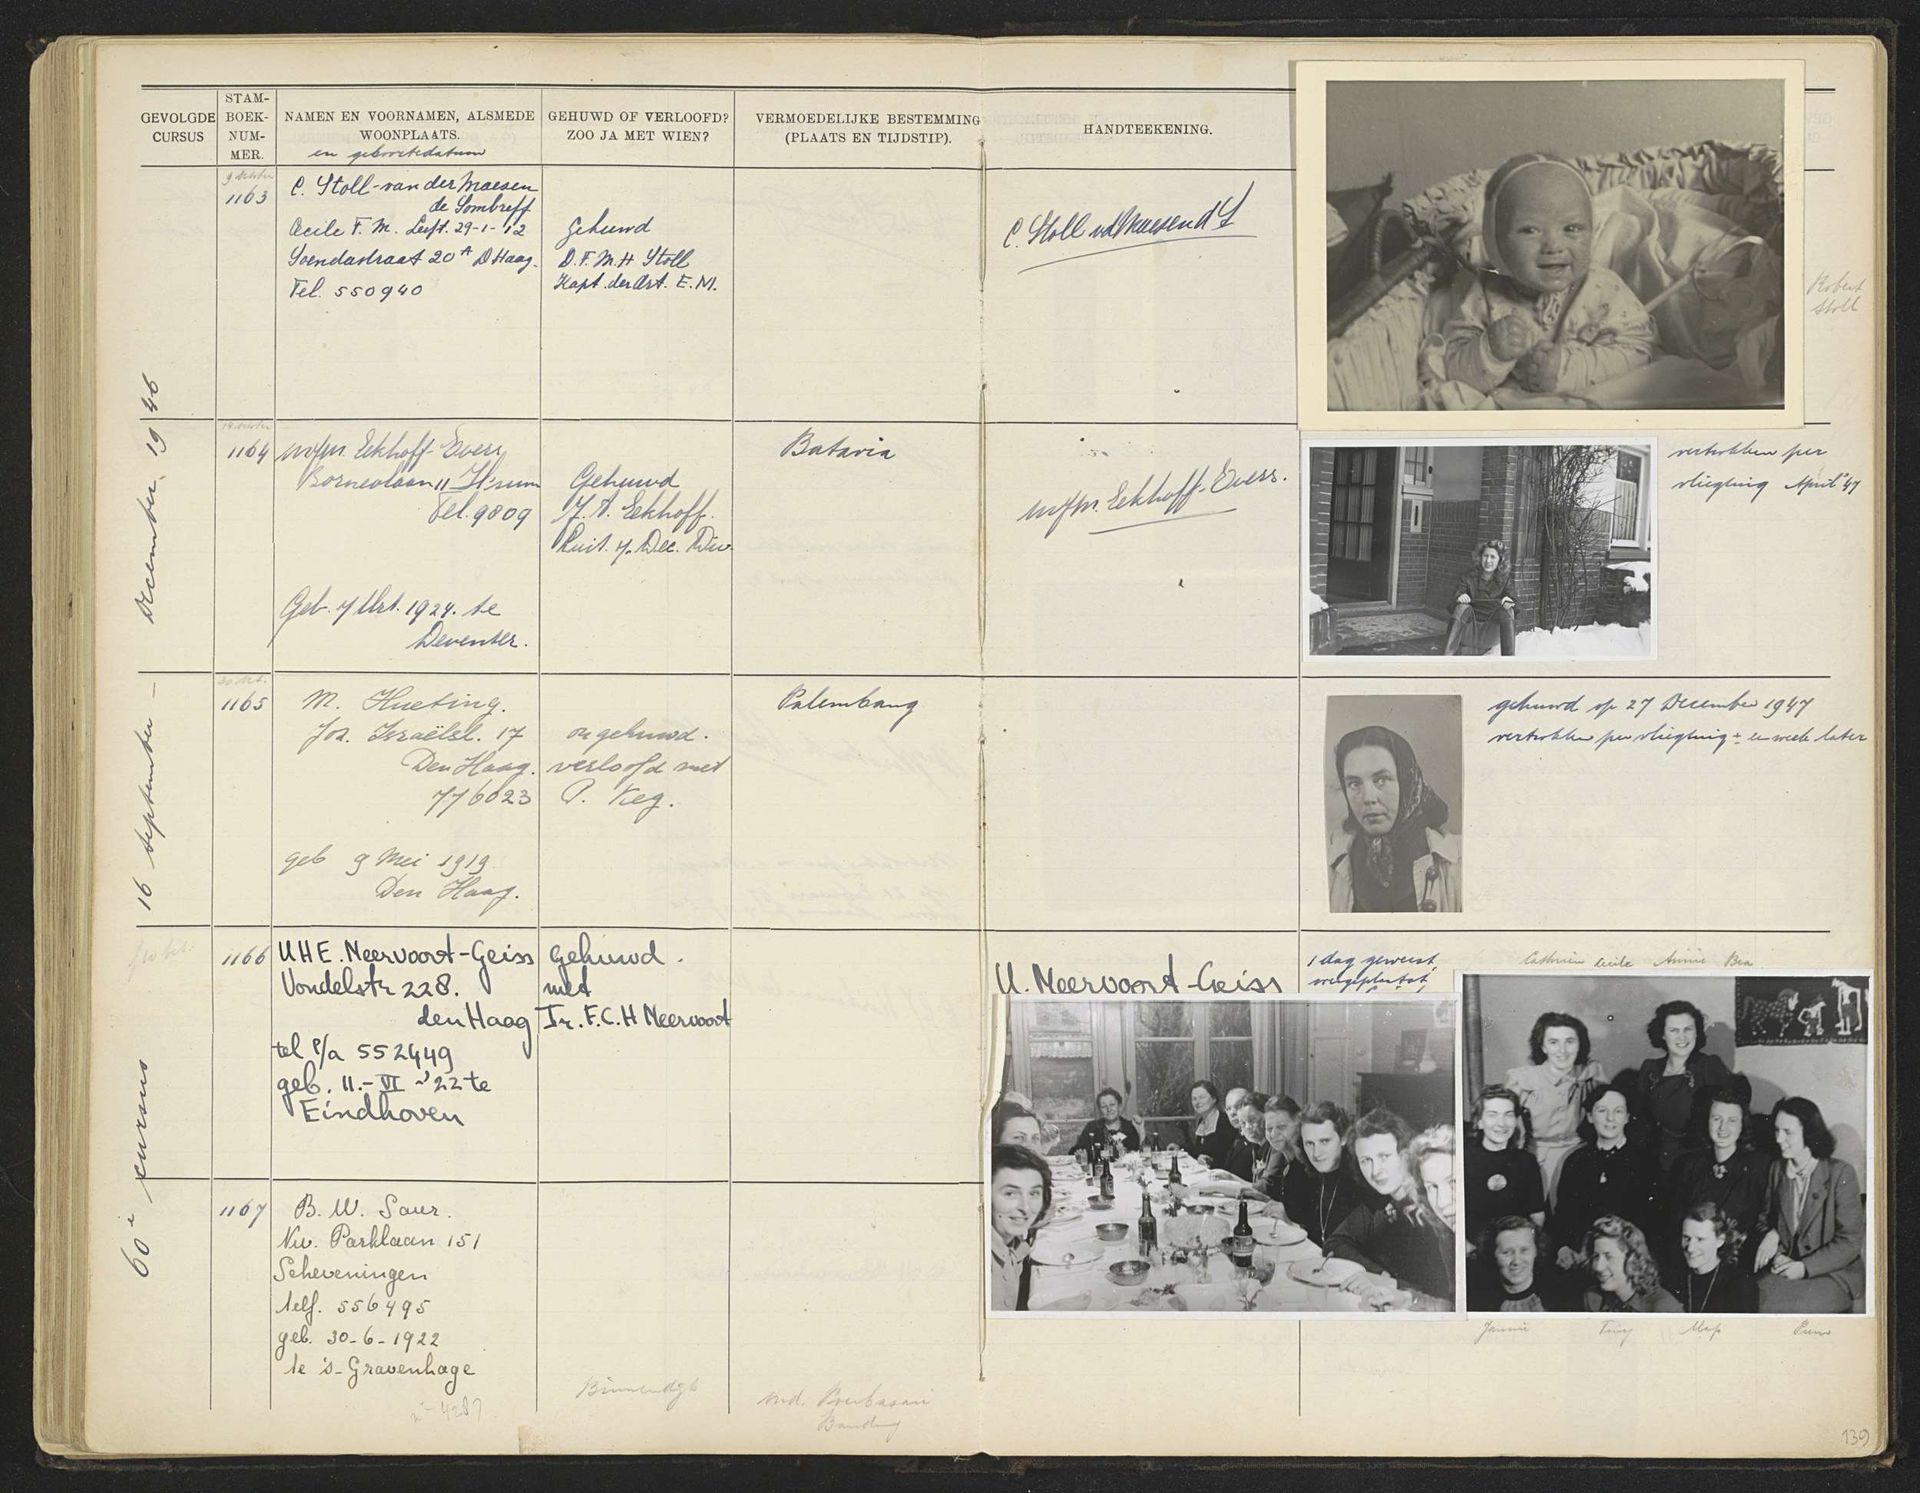 GEVOLGDE CURSUS
STAM-BOEK-NUM-MER.
NAMEN EN VOORNAMEN, ALSMEDE WOONPLAATS.
en geboortedatum
GEHUWD OF VERLOOFD? ZOO JA MET WIEN?
VERMOEDELIJKE BESTEMMING (PLAATS EN TIJDSTIP).
HANDTEEKENING.
60e cursus
16 september – december 1946
1163
C. Stoll-van der Maesen
de Sombreff
Cecile F. M. Leeft. 29-1-'12
Soendastraat 20A D Haag.
Tel. 550940
Gehuwd
D. F. M. H Stoll
Kapt. der Art. E. M.
C. Stoll vd Maesen d S
Robert
Stoll
1164
Eekhoff-Evers
Borneolaan 11 H'sum
Tel. 9809
Geb. 7 1924. te
Deventer.
Gehuwd
J. A. Eekhoff.
7 Dec. Div.
Batavia
Eekhoff-Evers.
vertrokken per
vliegtuig April '47
1165
M. Hueting.
Joz. Israëlsl. 17
Den Haag.
776023
geb 9 Mei 1919
Den Haag.
ongehuwd.
verloofd met
P. Keg.
Palembang
gehuwd op 27 December 1947
vertrokken per vliegtuig ± een week later
1166
UHE. Neervoort-Geiss
Vondelstr 228.
den Haag
tel p/a 552449
geb. 11.-VI-'22 te
Eindhoven
Gehuwd.
met
Ir. F.C.H Neervoort
U. Neervoort-Geiss
1 dag geweest,
overgeplaatst
Cathrien Cecile Annie Bea
Jannie Tiny Map Pum
1167
B. W. Saur.
Nw. Parklaan 151
Scheveningen
telf. 556495
geb. 30-6-1922
te 's-Gravenhage
4287
Binnendijk
Bandung
139